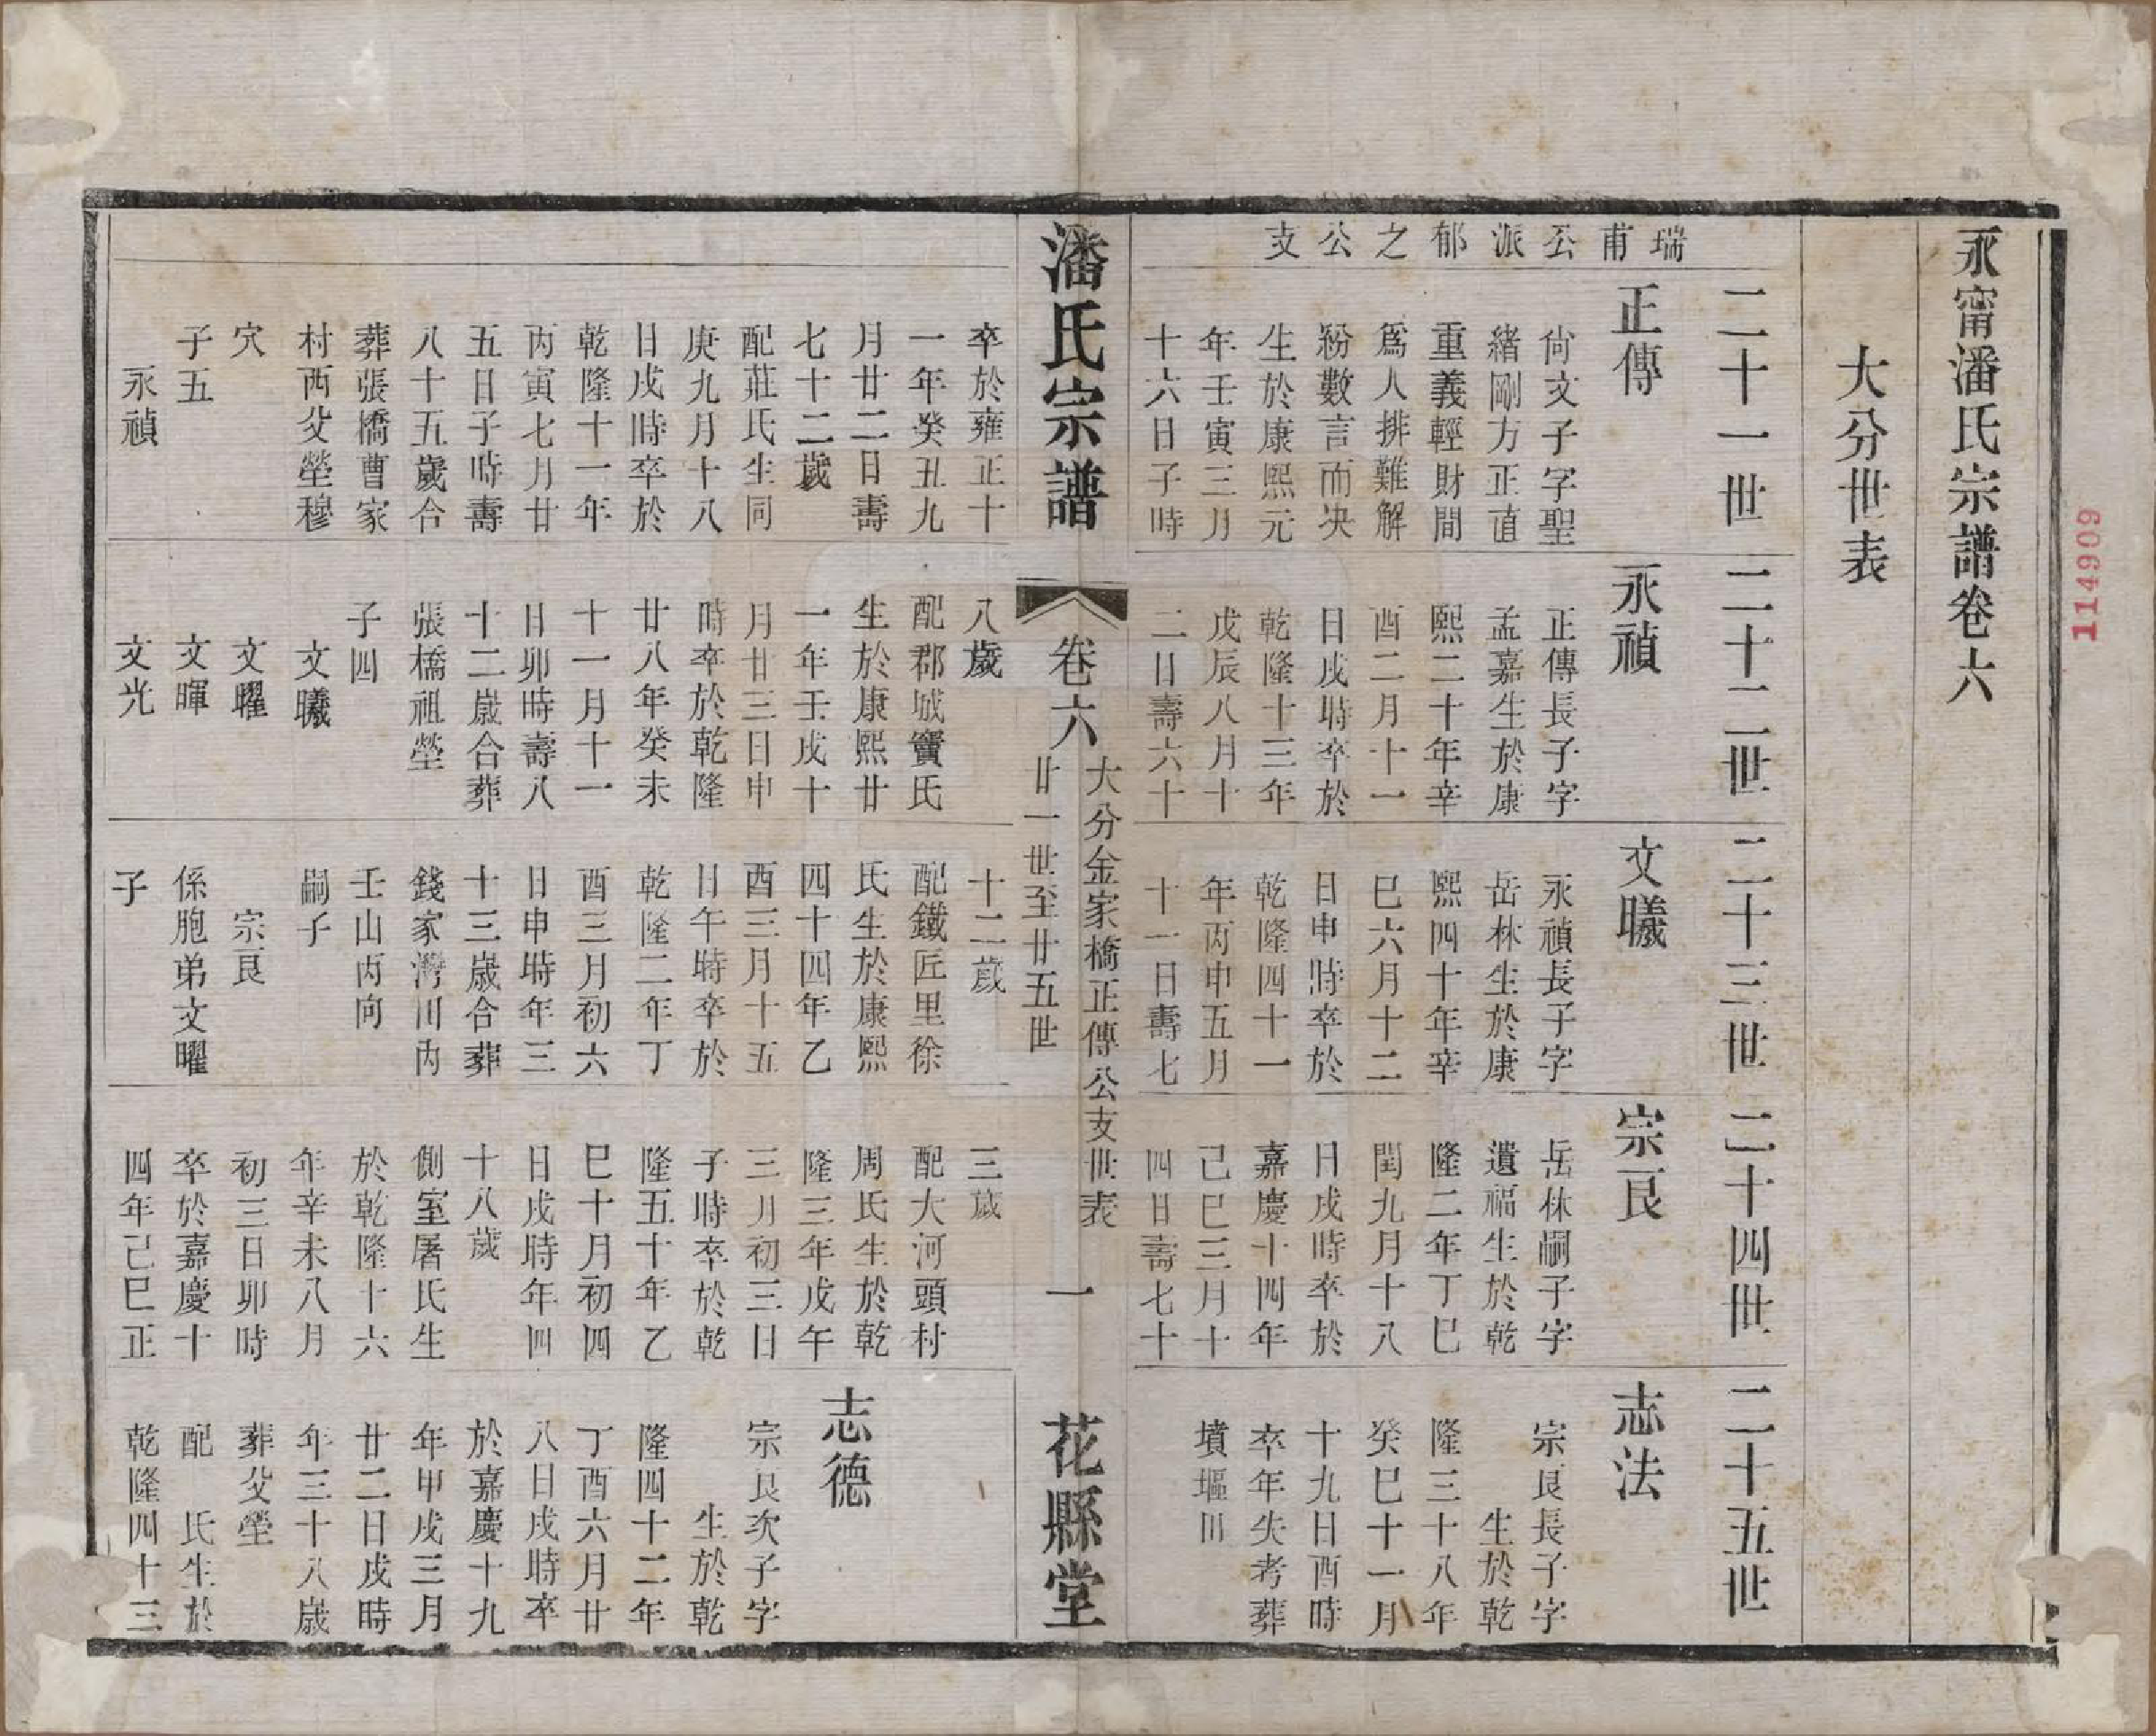 永甯潘氏宗譜卷六
大分世表
瑞甫公派郁之公支
二十一世
正傳
尙文子字聖
緒剛方正直
重義輕財間
爲人排難解
紛數言而决
生於康熙元
年壬寅三月
十六日子時
卒於雍正十
一年癸丑九
月廿二日壽
七十二歲
配莊氏生同
庚九月十八
日戌時卒於
乾隆十一年
丙寅七月廿
五日子時壽
八十五歲合
葬張橋曹家
村西父塋穆
穴
子五
永禎
二十二世
永禎
正傳長子字
孟嘉生於康
熙二十年辛
酉二月十一
日戌時卒於
乾隆十三年
戊辰八月十
二日壽六十
八歲
配郡城竇氏
生於康熙廿
一年壬戌十
月廿三日申
時卒於乾隆
廿八年癸未
十一月十一
日卯時壽八
十二歲合葬
張橋祖塋
子四
文曦
文曜
文暉
文光
二十三世
文曦
永禎長子字
岳林生於康
熙四十年辛
巳六月十二
日申時卒於
乾隆四十一
年丙申五月
十一日壽七
十二歲
配鐵匠里徐
氏生於康熙
四十四年乙
酉三月十五
日午時卒於
乾隆二年丁
酉三月初六
日申時年三
十三歲合葬
錢家灣川丙
壬山丙向
嗣子
宗良
係胞弟文曜
子
二十四世
宗良
岳林嗣子字
遺福生於乾
隆二年丁巳
閏九月十八
日戌時卒於
嘉慶十四年
己巳三月十
四日壽七十
三歲
配大河頭村
周氏生於乾
隆三年戊午
三月初三日
子時卒於乾
隆五十年乙
巳十月初四
日戌時年四
十八歲
側室屠氏生
於乾隆十六
年辛未八月
初三日卯時
卒於嘉慶十
四年己巳正
二十五世
志法
宗良長子字
生於乾
隆三十八年
癸巳十一月
十九日酉時
卒年失考葬
墳塸川
志德
宗良次子字
生於乾
隆四十二年
丁酉六月廿
八日戌時卒
於嘉慶十九
年甲戌三月
廿二日戌時
年三十八歲
葬父塋
配　氏生於
乾隆四十三
潘氏宗譜
卷六
大分金家橋正傳公支世表
廿一世至廿五世
一
花縣堂
114909